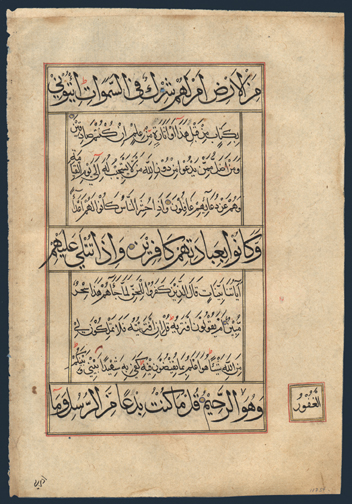 من الارض ام لهم شرك في السموات ايتوني
بكتاب من قبل هذا او اثارة من علم ان كنتم صادقين
ومن اضل ممن يدعوا من دون الله من لا يستجيب له الى يوم القيمة
وهم عن دعائهم غافلون واذا حشر الناس كانوا لهم اعداء
وكانوا بعبادتهم كافرين واذا تتلى عليهم
آياتنا بينات قال الذين كفروا للحق لما جاءهم هذا سحر
مبين ام يقولون افتريه قل ان افتريته فلا تملكون لي
من الله شيئا هو اعلم بما تفيضون فيه كفى به شهيدا بيني وبينكم
وهو
الغفور
وهو الرحيم قل ما كنت بدعا من الرسل وما
ادري